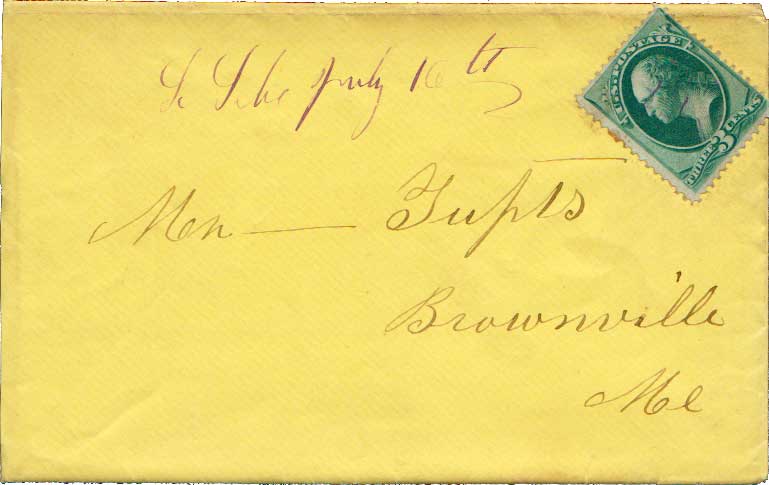 So Sebec July 16th
U.S. POSTAGE
THREE 3 CENTS
Mr — Tufts
Brownville
Me